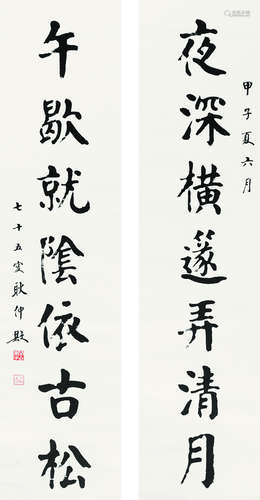 甲子夏六月
夜深橫篴弄清月
午歇就陰依古松
七十五叟耿仲敭